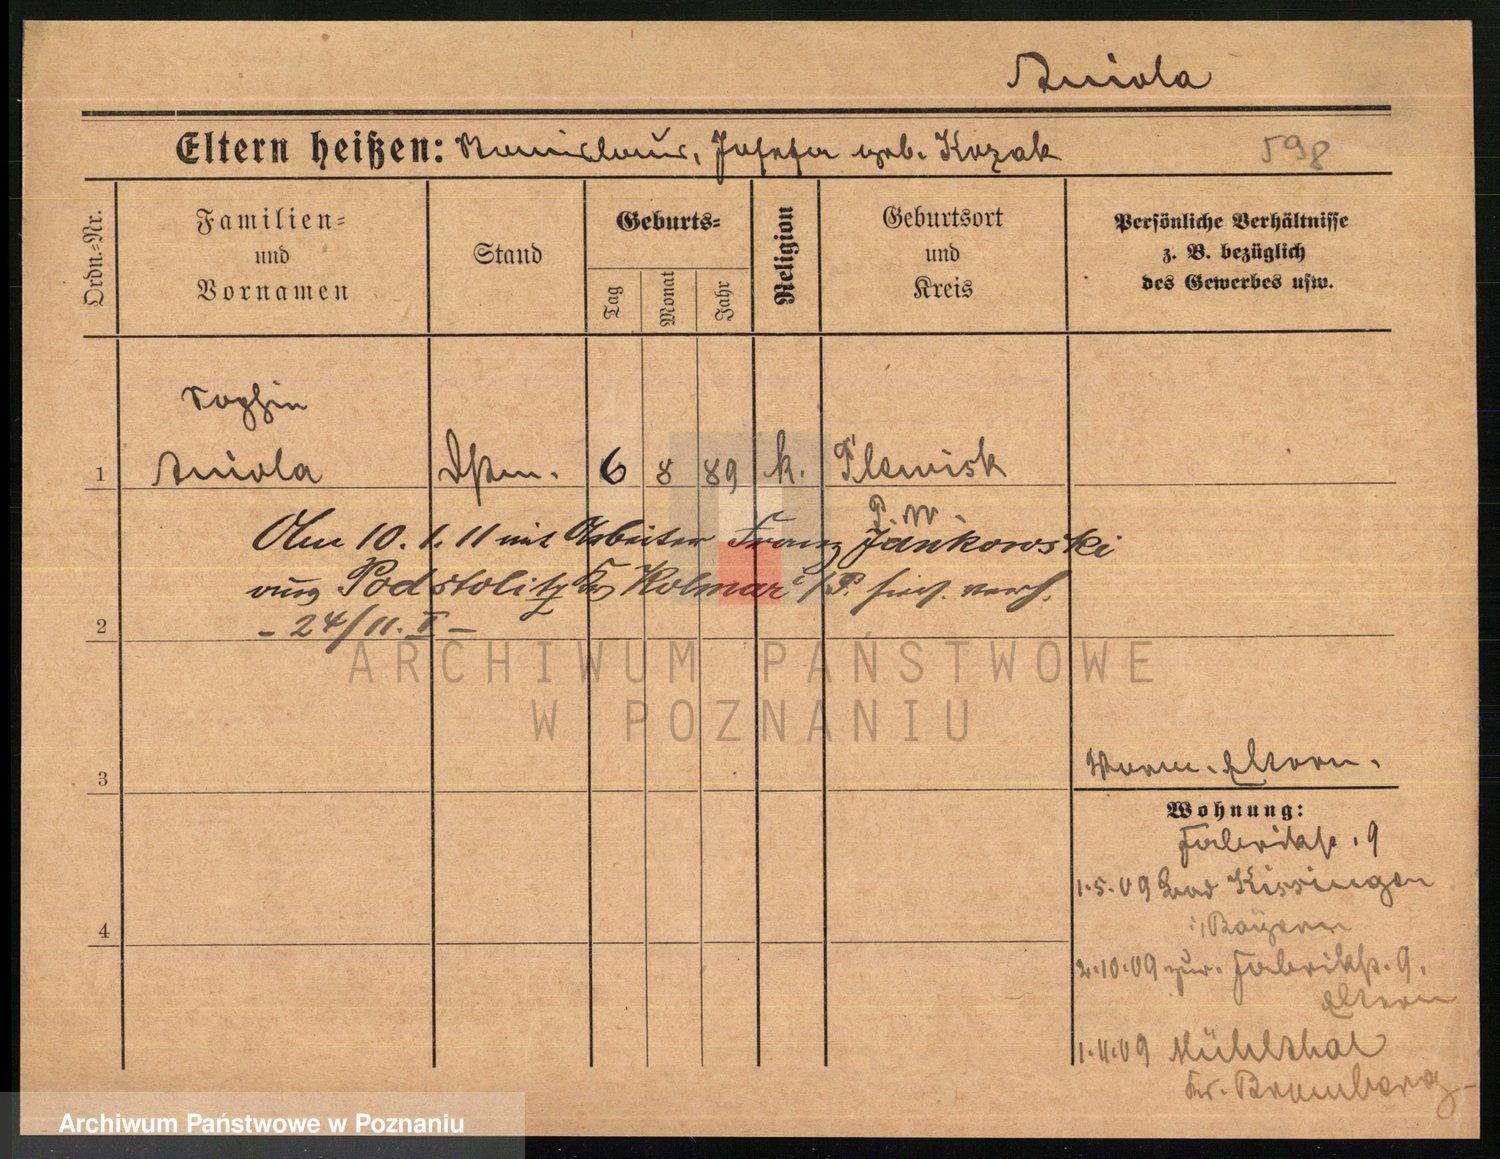 Aniola
Eltern heißen: Stanislaus, Josefa geb. Kozak 598
Ordn.-Nr.
Familien-
und
Vornamen
Stand
Geburts-
Tag
Monat
Jahr
Religion
Geburtsort
und
Kreis
Persönliche Verhältnisse
z. B. bezüglich
des Gewerbes usw.
Sophia
1 Aniola 6 8 89 k. Plewisk
P. W.
Am 10. 1. 11 mit Arbeiter Franz Jankowski
aus Podstolitz Kr Kolmar i/P. sich verh.
- 24/11. I -
2
3
Eltern.
Wohnung:
Fabrikstr. 9
1.5.09 Bad Kissingen
i/Bayern
2.10.09 zur. Fabrikstr. 9.
Eltern
4
1.11.09 Mühlthal
Kr. Bromberg
ARCHIWUM PAŃSTWOWE
W POZNANIU
Archiwum Państwowe w Poznaniu